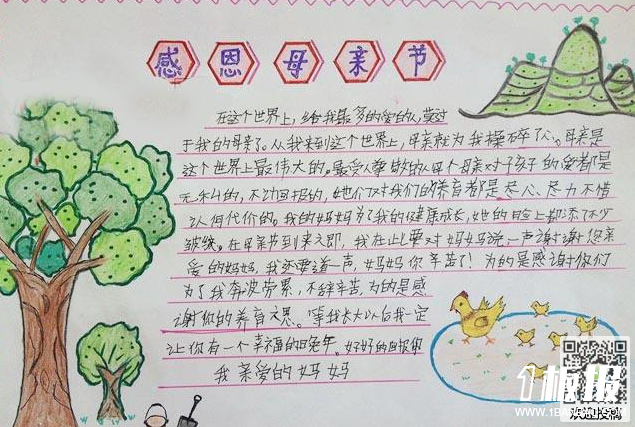 感恩母亲节
在这个世界上，给我最多的爱的人，莫过
于我的母亲了。从我来到这个世界上，母亲就为我操碎了心。母亲是
这个世界上最伟大的。最受人尊敬的人，每个母亲对子孩子的爱都是
无私的，不讨回报的，她们对我们的养育都是尽心、尽力不惜
认何代价的。我的妈妈为了我的健康成长，她的脸上都添了不少
皱纹。在母亲节到来之即，我在此要对妈妈说一声谢谢您亲
爱的妈妈，我还要道一声，妈妈你辛苦了！为的是感谢你们
为了我奔波劳累，不辞辛苦，为的是感
谢你的养育之恩。等我长大以后我一定
让你有一个幸福的晚年。好好的
我亲爱的妈妈
1板报
WWW.1BANBAO.COM